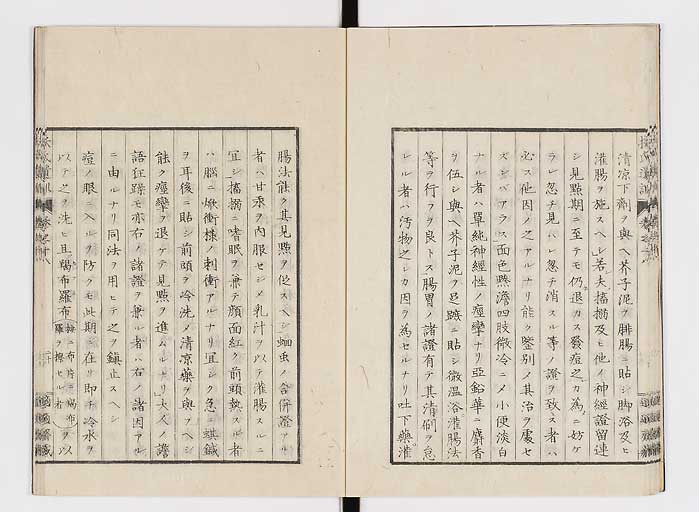 清凉下劑ヲ與ヘ芥子泥ヲ腓腸ニ貼シ脚浴及ヒ
灌腸ヲ施スヘシ若夫搐搦及ヒ他ノ神經證留連
シ見點期ニ至テモ仍退カス發痘之カ為ニ妨ケ
ラレ忽チ見ハレ忽チ消スル等ノ證ヲ致ス者ハ
必ス他因ノ之アルナリ能ク鑒別ノ其治ヲ處セ
スンバアラス面色黲澹四肢微冷ニメ小便淡白
ナル者ハ單純神經性ノ痙攣ナリ亞鉛華ニ麝香
ヲ伍シ與ヘ芥子泥ヲ足蹠ニ貼シ微温浴灌腸法
等ヲ行フヲ良トス腸胃ノ諸證有テ其清刷ヲ怠
レル者ハ汚物之レカ因ヲ為セルナリ吐下藥灌
腸法能ク其見點ヲ促スヘシ蛔虫ノ合併證アル
者ハ甘汞ヲ内服セシメ乳汁ヲ以テ灌腸スルニ
宜シ搐搦ニ嗜眠ヲ兼テ顔面紅ク前頭熱スル者
ハ腦ニ焮衝様ノ刺衝アルナリ宜シク急ニ蜞鍼
ヲ耳後ニ貼シ前頭ヲ冷洗メ清凉藥ヲ與フヘシ
能ク痙攣ヲ退ケテ見點ヲ進ムルナリ大人ノ譫
語狂躁モ亦右ノ諸證ヲ兼ル者ハ右ノ諸因アル
ニ由ルナリ同法ヲ用ヒテ之ヲ鎮止スヘシ
痘ノ眼ニ入ルヲ防クモ此期ニ在リ即チ冷水ヲ
以テ之ヲ洗ヒ且羯布羅布 ヲ以